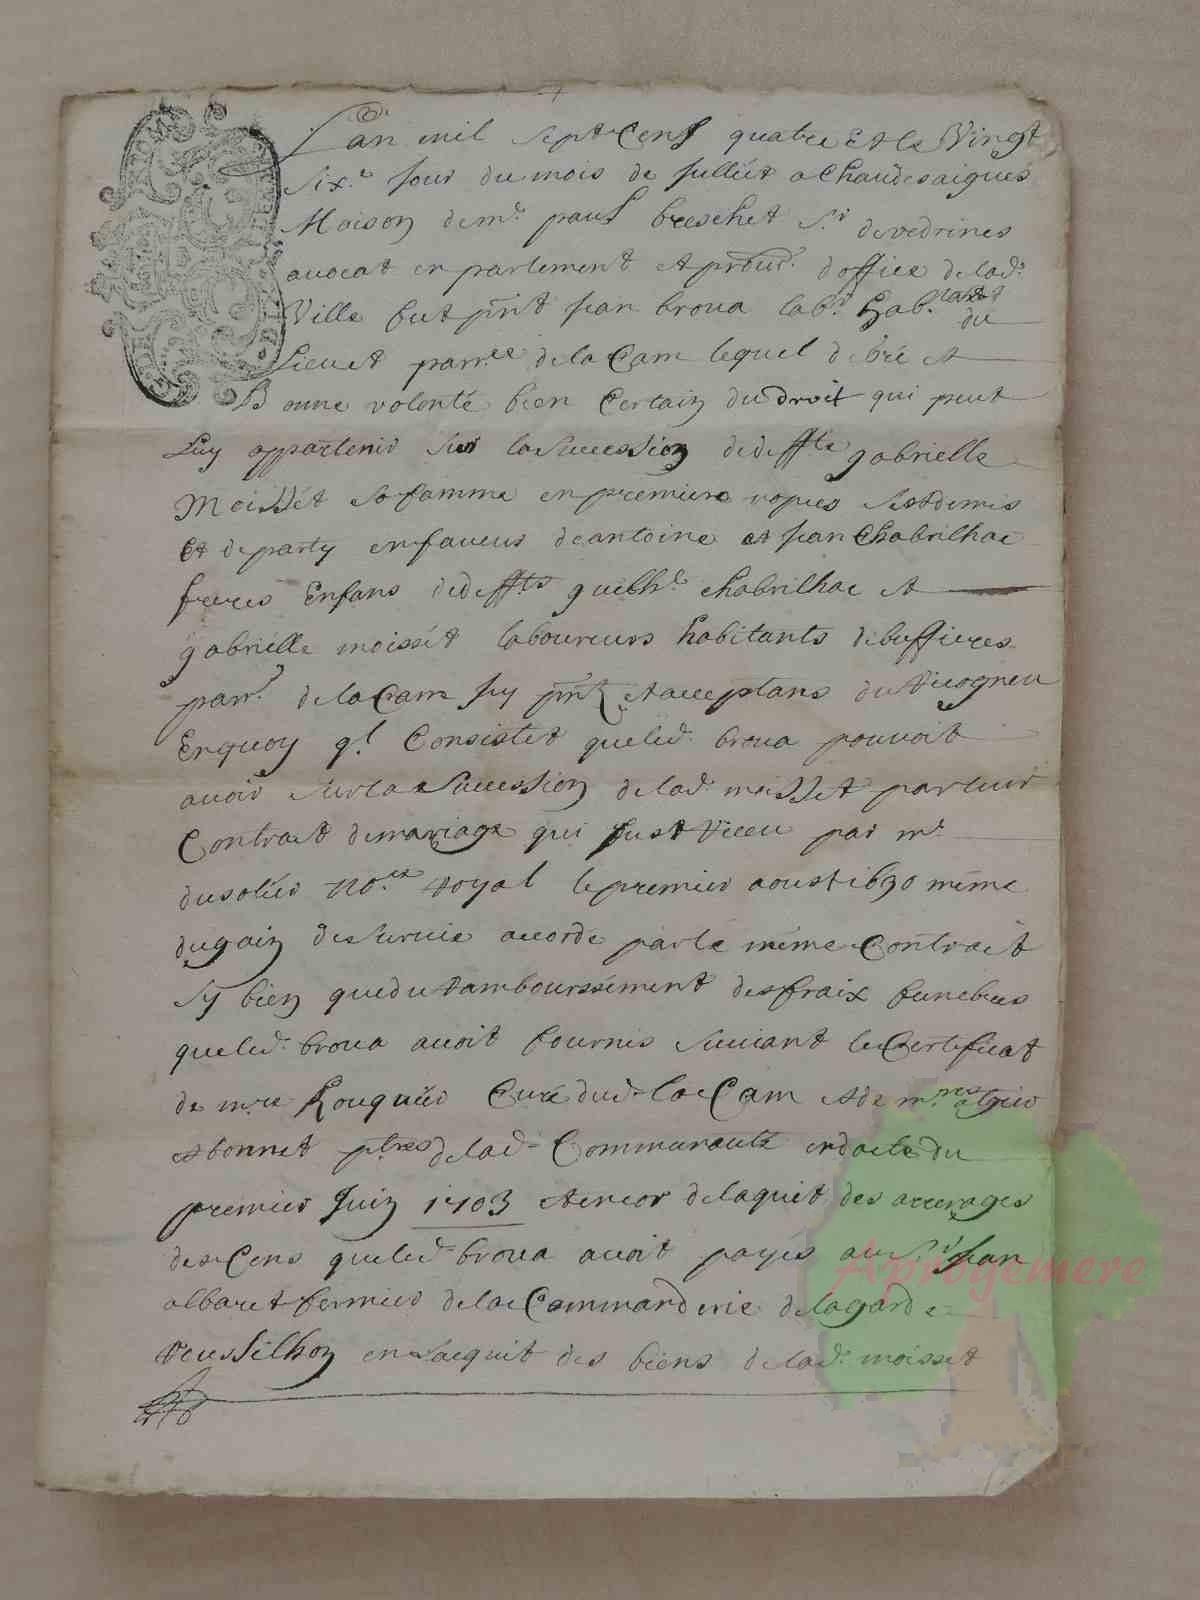 Lan mil sept Cens quatre Et le Vingt
six.e Jour du mois de Jullet a Chaudesaigues
Maison de m.e paul breschet s.r de vedrines
avocat en parlement et procur.r doffice de lad.e
Ville fut p̃nt Jean broua lab.r hab.tant du
Lieu et parr.e de la Cam lequel de bre et
Bonne volonté bien Certain du droit qui peut
Luy appartenir sur la succession de deffte gabrielle
Moisset sa famme en premiere nopces sest demis
Et departy en faveur de antoine et Jean Chabrilhac
freres Enfans de deffts guilh.e chabrilhac et
gabrielle moissét laboureurs habitants de buffieres
parr.e de la Cam Icy p̃nts et acceptans du
Enquoy q.l Consistet que led. broua pouvoit
avoir sur la succession de lad. moisset par leur
Contract de mariage qui fust receu par m.e
dusolier no.re royal le premier aoust 1690 méme
du gain de survie accordé par le méme Contract
sy bien que du rambourssément des fraix funebres
que led. broua avoit fournis suivant le Certificat
de m.re Curé dud. la Cam et de m.res
et bonnet ptres de lad. Communauté en datte du
premier Juin 1703 et encor de laquit des arrerages
des Cens que led. broua avoit payés au s.r Jean
albaret fermier de la Commanderie de la garde
roussilhon en lacquit des biens de lad. moisset
Aprogemere